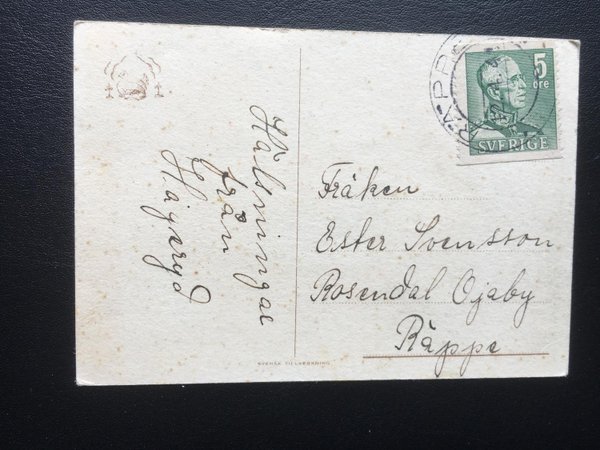 Hälsningar
från
Hagaryd
5
öre
SVERIGE
RÄPPE
Fröken
Ester Svensson
Rosendal Öjaby
Räppe
SVENSK TILLVERKNING